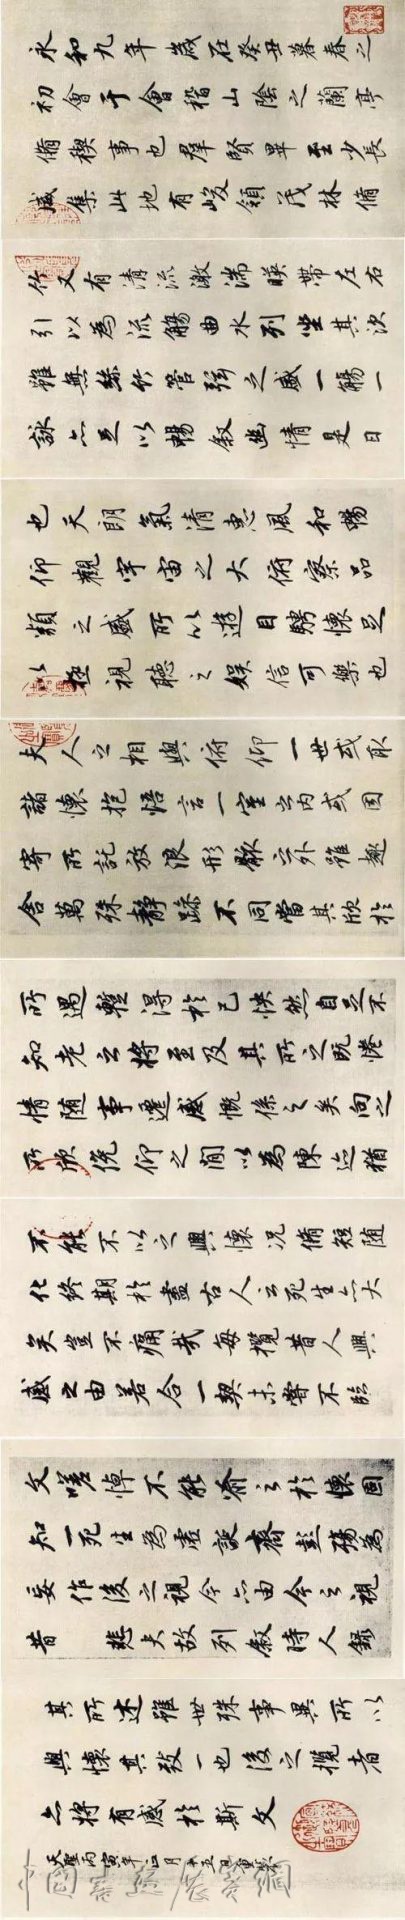 永和九年歲在癸丑暮春之
初會于會稽山陰之蘭亭
脩稧事也羣賢畢至少長
咸集此地有峻領茂林脩
竹又有清流激湍暎帶左右
引以為流觴曲水列坐其次
雖無絲竹管弦之盛一觴一
詠亦足以暢敘幽情是日
也天朗氣清惠風和暢
仰觀宇宙之大俯察品
類之盛所以遊目騁懷足
以極視聽之娛信可樂也
夫人之相與俯仰一世或取
諸懷抱悟言一室之內或因
寄所託放浪形骸之外雖趣
舍萬殊靜躁不同當其欣於
所遇蹔得於己怏然自足不
知老之將至及其所之既惓
情隨事遷感慨係之矣向之
所欣俛仰之閒以為陳迹猶
不能不以之興懷況脩短隨
化終期於盡古人云死生亦大
矣豈不痛哉每攬昔人興
感之由若合一契未嘗不臨
文嗟悼不能喻之於懷固
知一死生為虛誕齊彭殤為
妄作後之視今亦由今之視
昔悲夫故列敘時人錄
其所述雖世殊事異所以
興懷其致一也後之攬者
亦將有感於斯文
天聖丙寅年正月十五日重裝